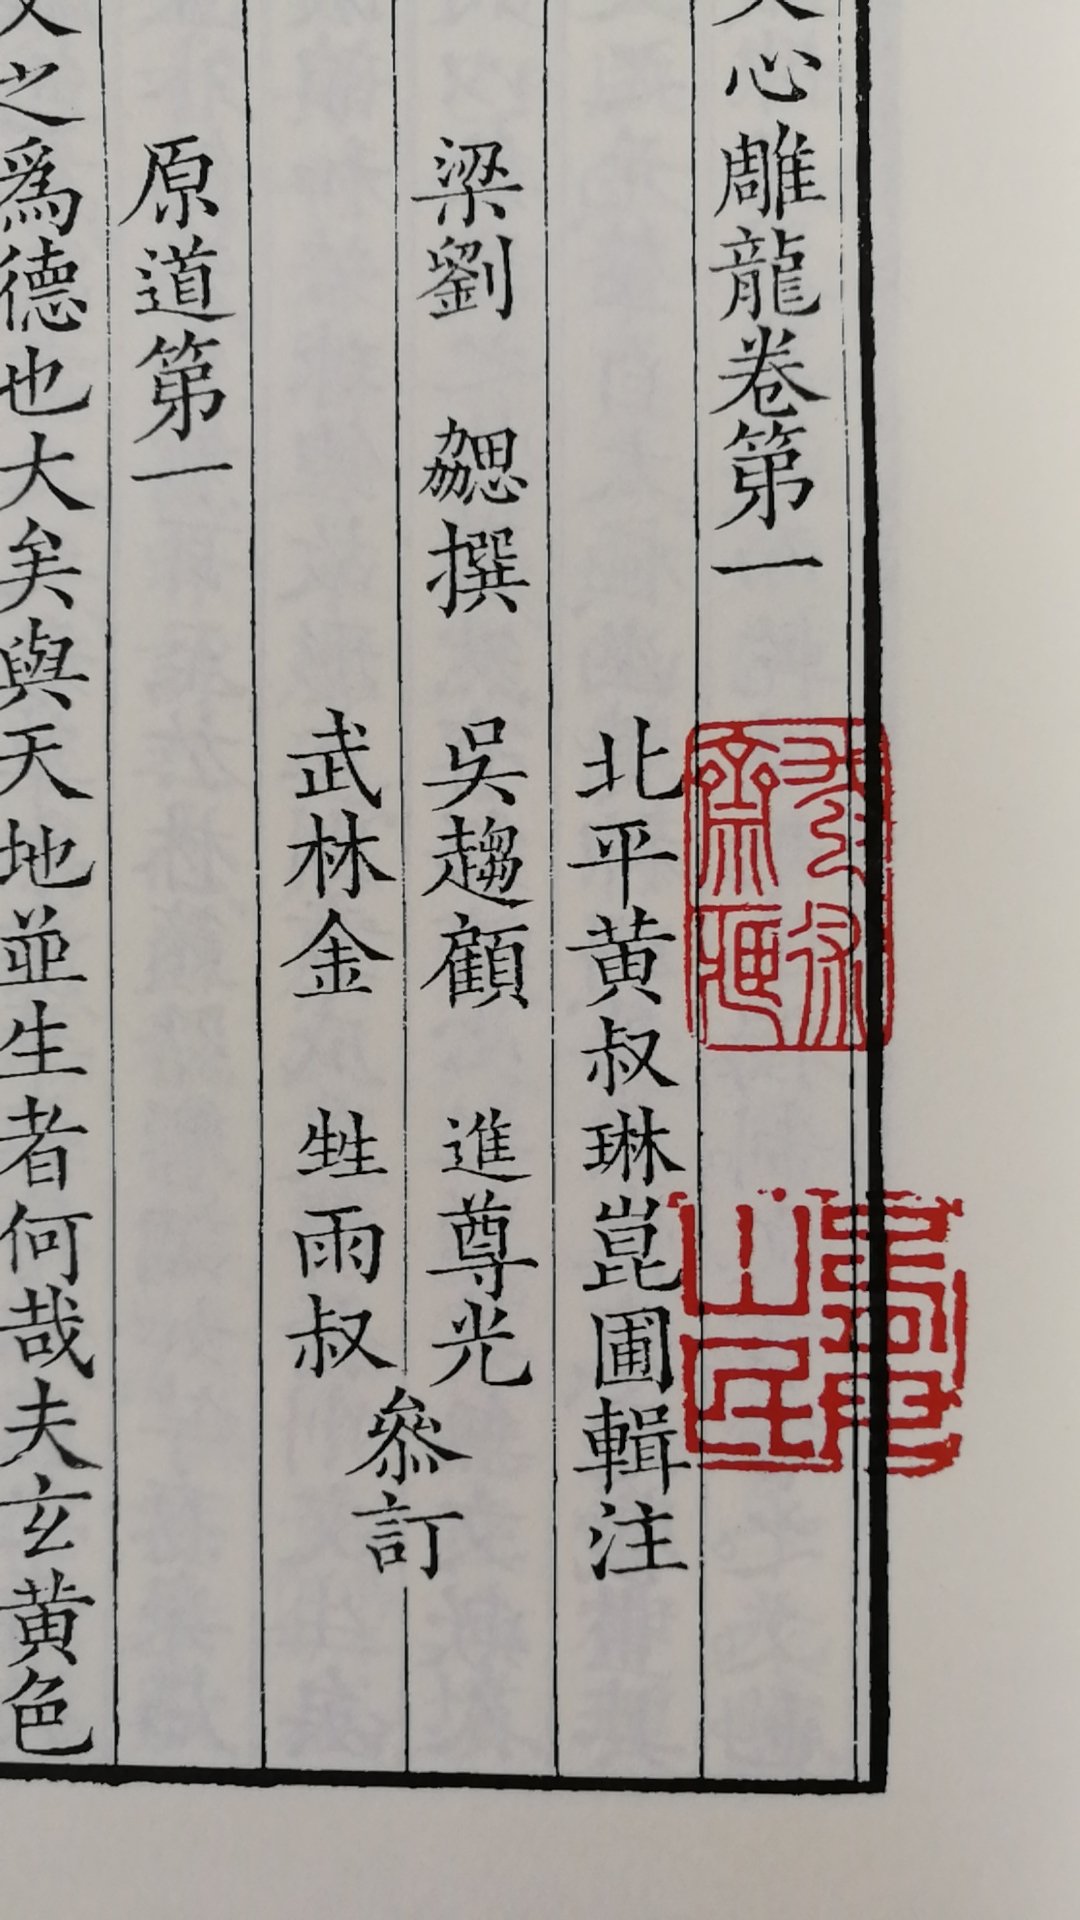 文心雕龍卷第一
北平黄叔琳崑圃輯注
梁劉勰撰 吳趨顧進尊光
武林金甡雨叔
參訂
原道第一
文之爲德也大矣與天地並生者何哉夫玄黄色